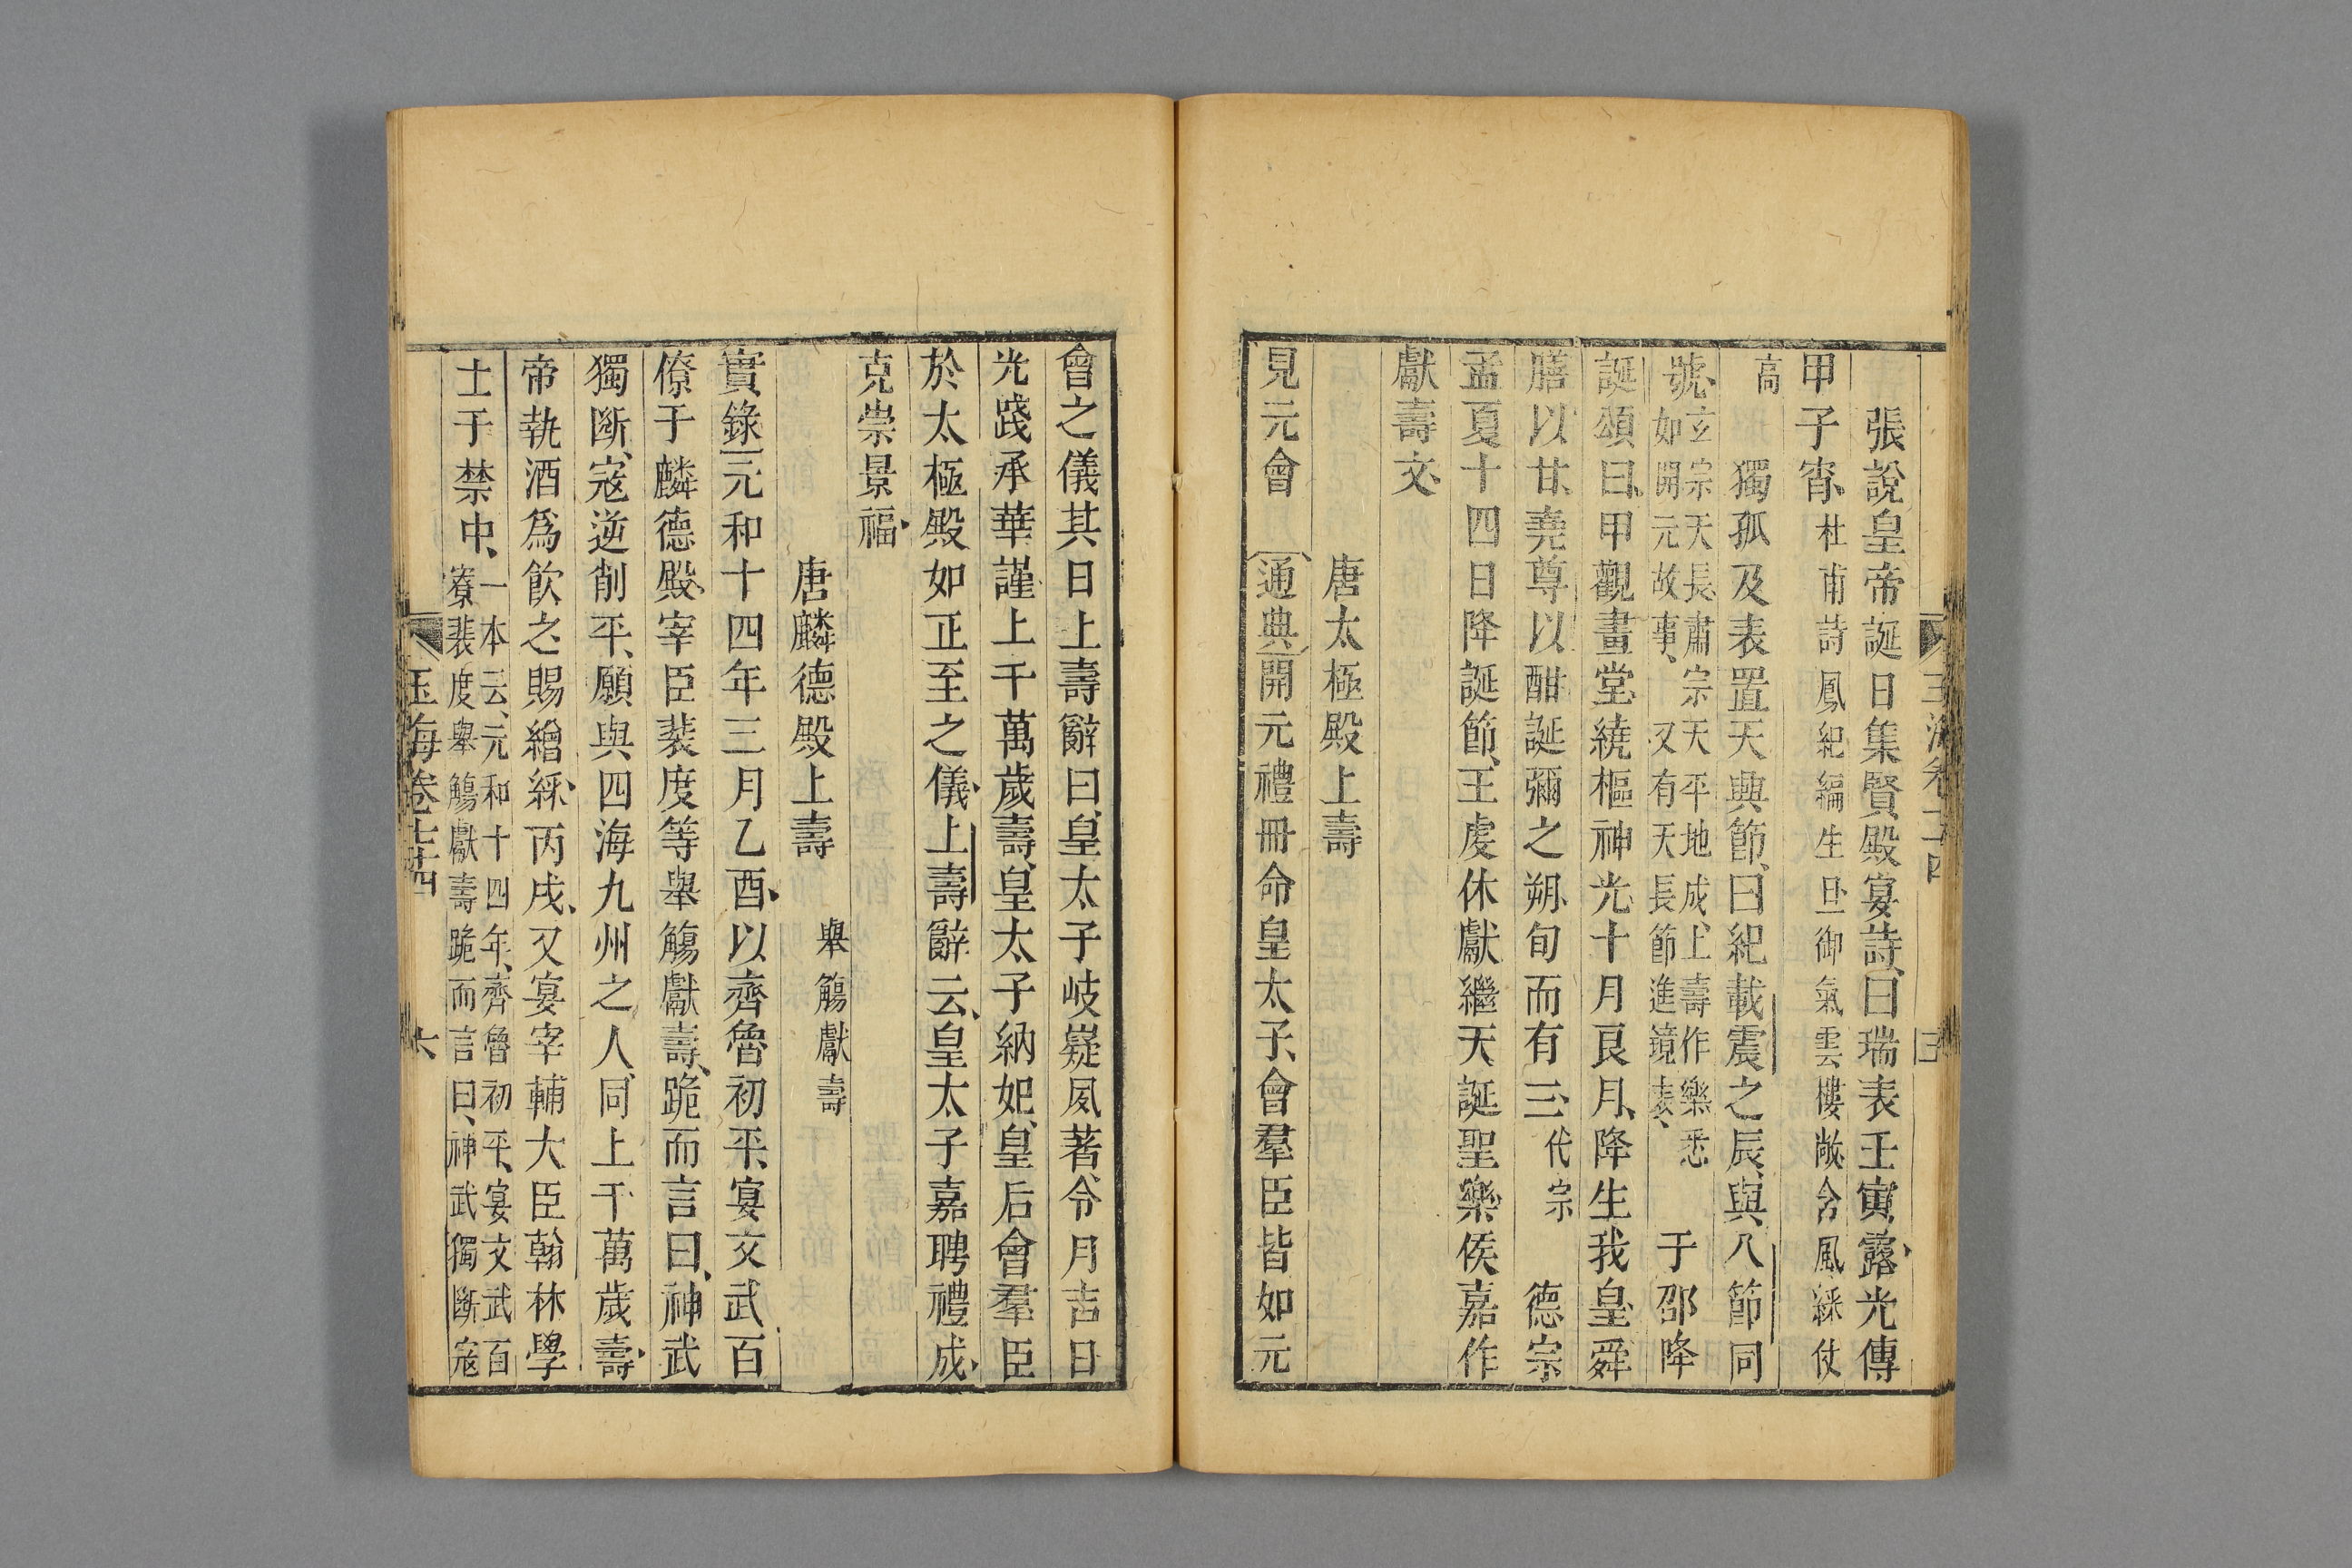 張說皇帝誕日集賢殿宴詩曰瑞表壬寅露光傳
甲子宵杜甫詩鳳紀編生旦御氣雲樓敞含風綵仗
高 獨孤及表置天興節曰紀載震之辰與八節同
號玄宗天長肅宗天平地成上壽作樂悉
如開元故事又有天長節進鏡表 于邵降
誕頌曰甲觀畫堂繞樞神光十月良月降生我皇舜
膳以甘堯尊以酣誕彌之朔旬而有三代宗 德宗
孟夏十四日降誕節王虔休獻繼天誕聖樂侯嘉作
獻壽文
唐太極殿上壽
見元會 通典開元禮冊命皇太子會羣臣皆如元
會之儀其日上壽辭曰皇太子岐嶷夙著令月吉日
光踐承華謹上千萬歲壽皇太子納妃皇后會羣臣
於太極殿如正至之儀上壽辭云皇太子嘉聘禮成
克崇景福
唐麟德殿上壽 舉觴獻壽
實錄元和十四年三月乙酉以齊魯初平宴文武百
僚于麟德殿宰臣裴度等舉觴獻壽跪而言曰神武
獨斷寇逆削平願與四海九州之人同上千萬歲壽
帝執酒爲飲之賜繒綵丙戌又宴宰輔大臣翰林學
士于禁中一本云元和十四年齊魯初平宴文武百
寮裴度舉觴獻壽跪而言曰神武獨斷寇
玉海卷七十四 六